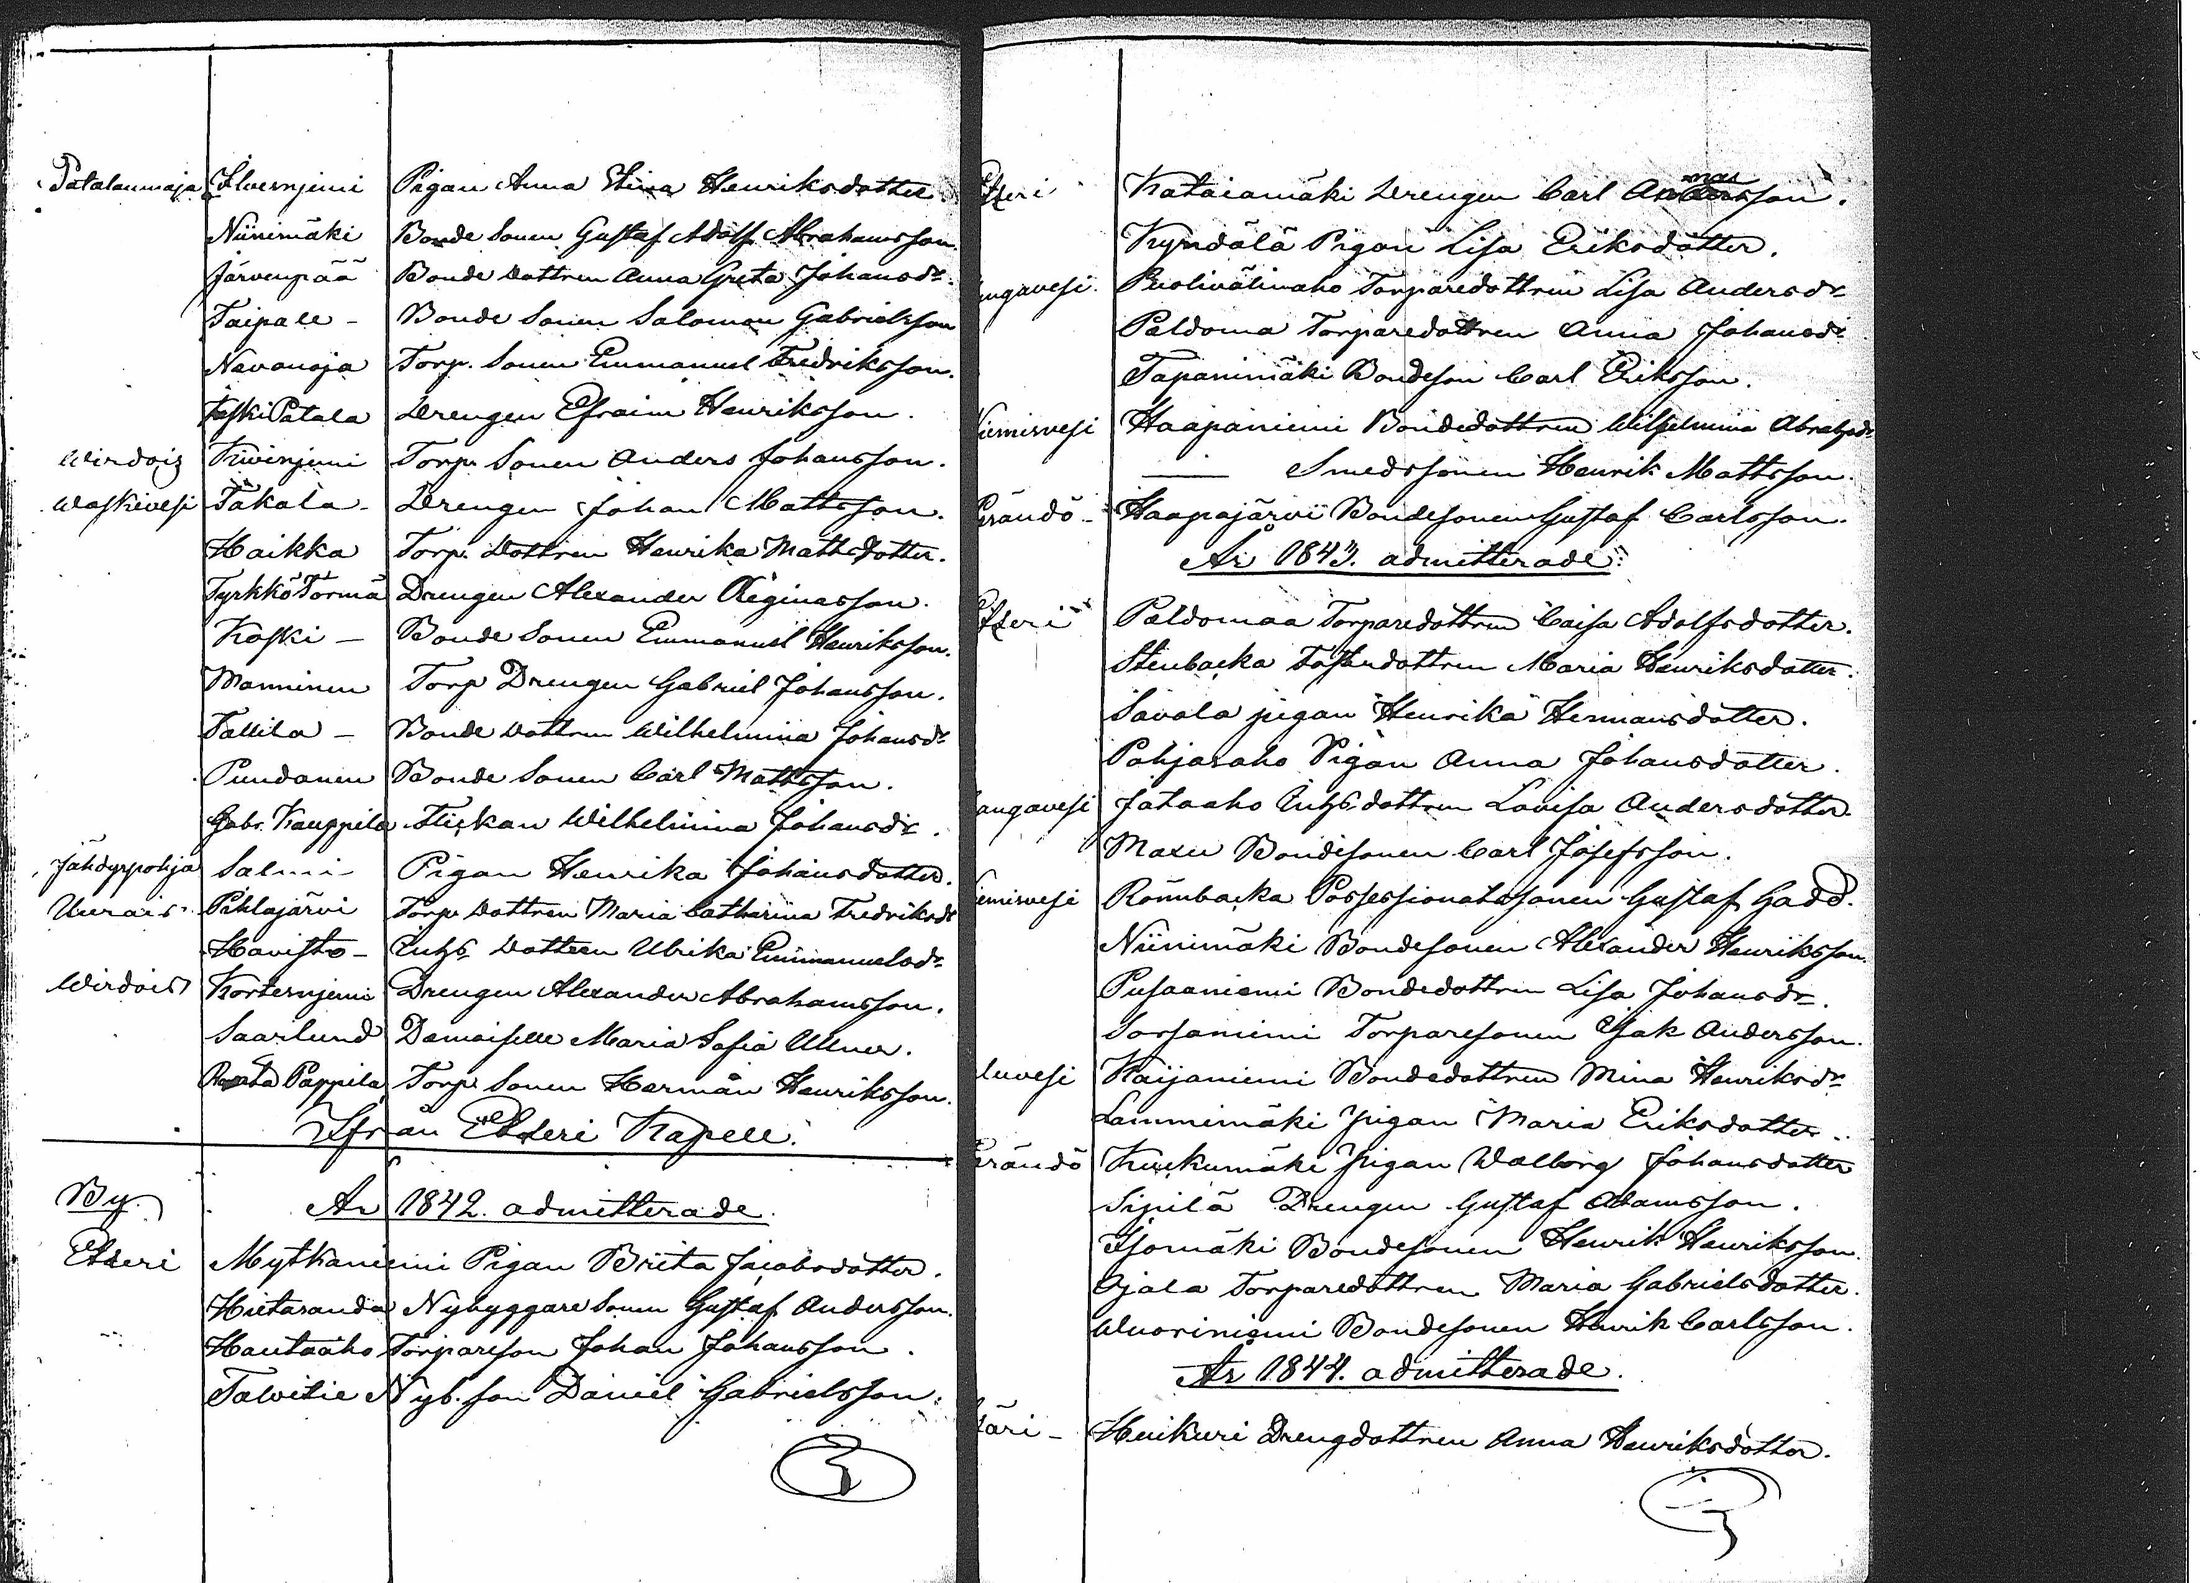 Patalanmaja Ilvesnjemi Pigan Anna Stina Henriksdotter.
Niinimäki Bonde Sonen Gustaf Adolf Abrahamsson.
Järvenpää Bonde Dottren Anna Greta Johansdr.
Taipale - Bonde Sonen Salomon Gabrielsson
Navanoja Torp. Sonen Emmanuel Fredriksson.
Koski Patala Drengen Efraim Henriksson.
Wirdois Kivinjemi Torp. Sonen Anders Johansson.
Waskivesi Täkälä - Drengen Johan Mattsson.
Haikka Torp. Dottren Henrika Mattsdotter.
Tyrkkö Törmä Drengen Alexander Reginasson.
Koski - Bonde Sonen Emmanuel Henriksson.
Manninen Torp Drengen Gabriel Johansson.
Tallila - Bonde Dottren Wilhelmina Johansdr
Pundanen Bonde Sonen Carl Mattsson.
Gabr. Kauppila Flickan Wilhelmina Johansdr.
Jähdyspohja Salmi - Pigan Henrika Johansdotter.
Uurais. Pihlajärvi Torp. Dottren Maria Catharina Fredriksdr
Havisto - Inhs. Dottern Ulrika Emmanuelsdr.
Wirdois Kortesnjemi Drengen Alexander Abrahamsson.
Saarlund Demoiselle Maria Sofia Ullner.
Pappila Torp. Sonen Herman Henriksson.
Ifrån Etseri Kapell.
By.
År 1842. admitterade.
Etseri Mytkäniemi Pigan Brita Jacobsdotter.
Hietaranda Nybyggare Sonen Gustaf Andersson.
Hautaaho Torpareson Johan Johansson.
Talvitie Nyb. son Daniel Gabrielsson.
Etseri Kataiamäki Drengen Carl Annasson.
Kyndälä Pigan Lisa Eriksdotter.
ngavesi. Puolivälinaho Torparedottren Lisa Andersdr
Paldoma Torparedottren Anna Johansdr
Tapanimäki Bondeson Carl Eriksson.
Niemisvesi Haapaniemi Bondedottren Wilhelmina Abrahsdr
— Smedssonen Henrik Mattsson.
Perändö - Haapajärvi Bondesonen Gustaf Carlsson.
År 1843. admitterade.
Etseri Paldomaa Torparedottren Caisa Adolfsdotter.
Stenbacka Maria Henriksdotter.
Savola pigan Henrika Hermansdotter.
Pohjasaho Pigan Anna Johansdotter.
angavesi Jataaho Inhs. dottren Lovisa Andersdotter.
Maxu Bondesonen Carl Josefsson.
iemisvesi Rönnbacka Possessionatssonen Gustaf Gadd.
Niinimäki Bondesonen Alexander Henriksson.
Pusaaniemi Bondedottren Lisa Johansdr.
Sorsaniemi Torparesonen Isak Andersson.
luvesi Kaijaniemi Bondedottren Mina Henriksdr
Lammimäki pigan Maria Eriksdotter.
erändö Kuckumäki pigan Walborg Johansdotter
Sipilä Drengen Gustaf Adamsson.
Isomäki Bondesonen Henrik Henriksson.
Ojala Torparedottren Maria Gabrielsdotter.
Wuoriniemi Bondesonen Henrik Carlsson.
År 1844. admitterade.
äri - Huikuri Drengdottren Anna Henriksdotter.